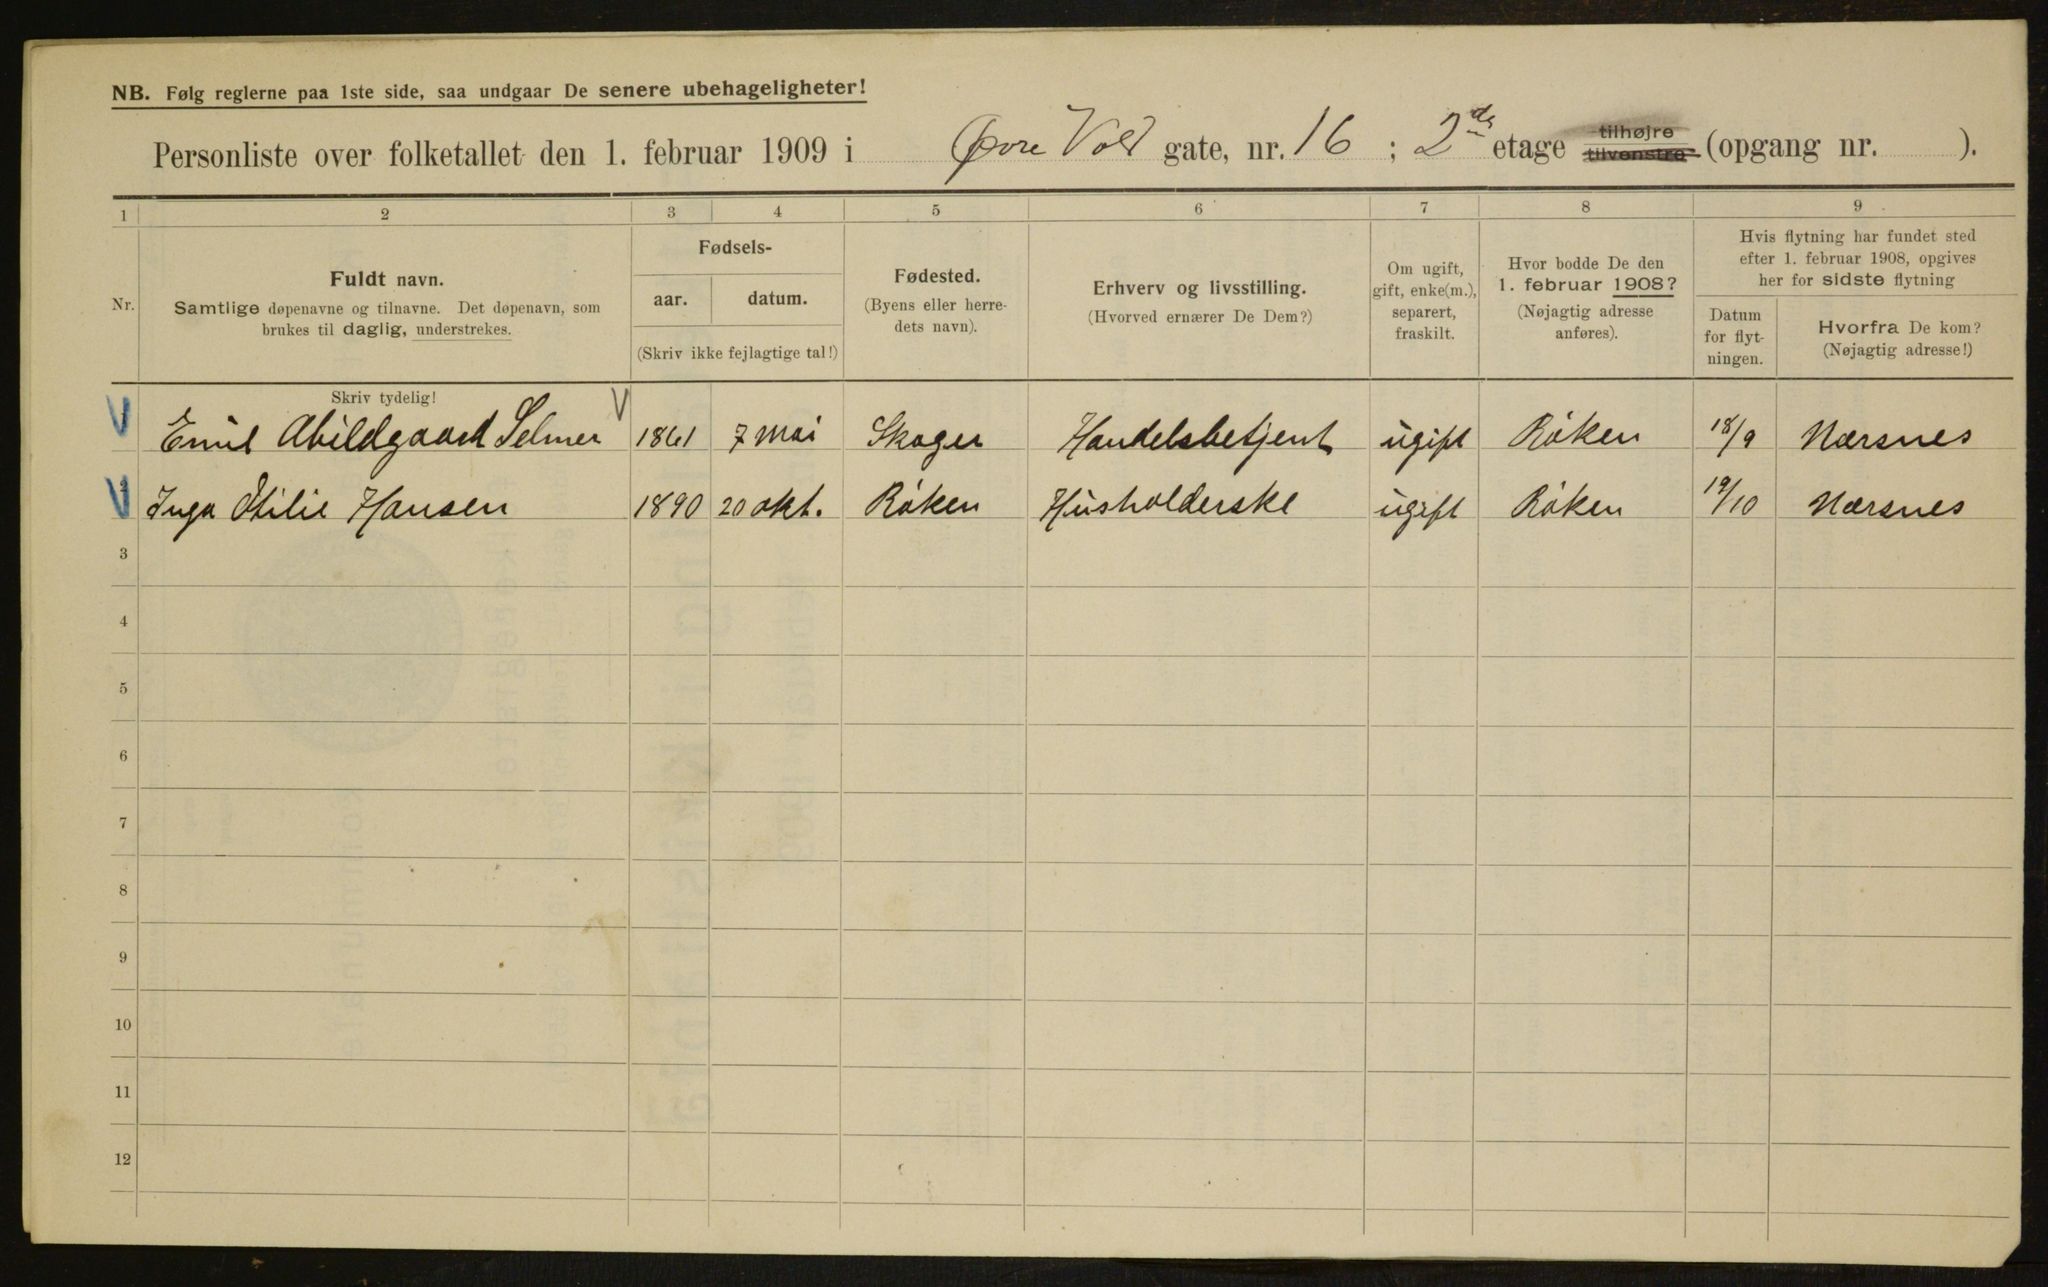 NB. Følg reglerne paa 1ste side, saa undgaar De senere ubehageligheter!
Personliste over folketallet den 1. februar 1909 i Øvre Vold gate, nr. 16 ; 2de etage tilhøjre tilvenstre (opgang nr. ).
1 2 3 4 5 6 7 8 9
Nr.
Fuldt navn.
Samtlige døpenavne og tilnavne. Det døpenavn, som
brukes til daglig, understrekes.
Fødsels-
aar. datum.
(Skriv ikke fejlagtige tal!)
Fødested.
(Byens eller herre-
dets navn).
Erhverv og livsstilling.
(Hvorved ernærer De Dem?)
Om ugift,
gift, enke(m.),
separert,
fraskilt.
Hvor bodde De den
1. februar 1908?
(Nøjagtig adresse
anføres).
Hvis flytning har fundet sted
efter 1. februar 1908, opgives
her for sidste flytning
Datum
for flyt-
ningen.
Hvorfra De kom?
(Nøjagtig adresse!)
Skriv tydelig!
1 Emil Abildgaard Selmer 1861 7 mai Skoger Handelsbetjent ugift Røken 18/9 Nærsnes
2 Inga Otilie Hansen 1890 20 okt. Røken Husholderske ugift Røken 19/10 Nærsnes
3
4
5
6
7
8
9
10
11
12